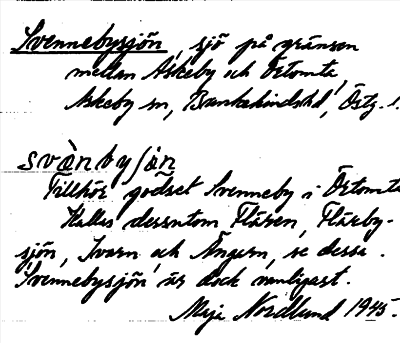 Svennebysjön, sjö på gränsen
mellan Askeby och Örtomta,
Askeby sn, Bankekinds hd, Östg. l.
svὰnbyʃön
Tillhör godset Svenneby i Örtomta
Kallas dessutom Flären, Flärby-
sjön, Svarn och Ängern, se dessa.
Svennebysjön är dock vanligast.
Maja Nordlund 1945.